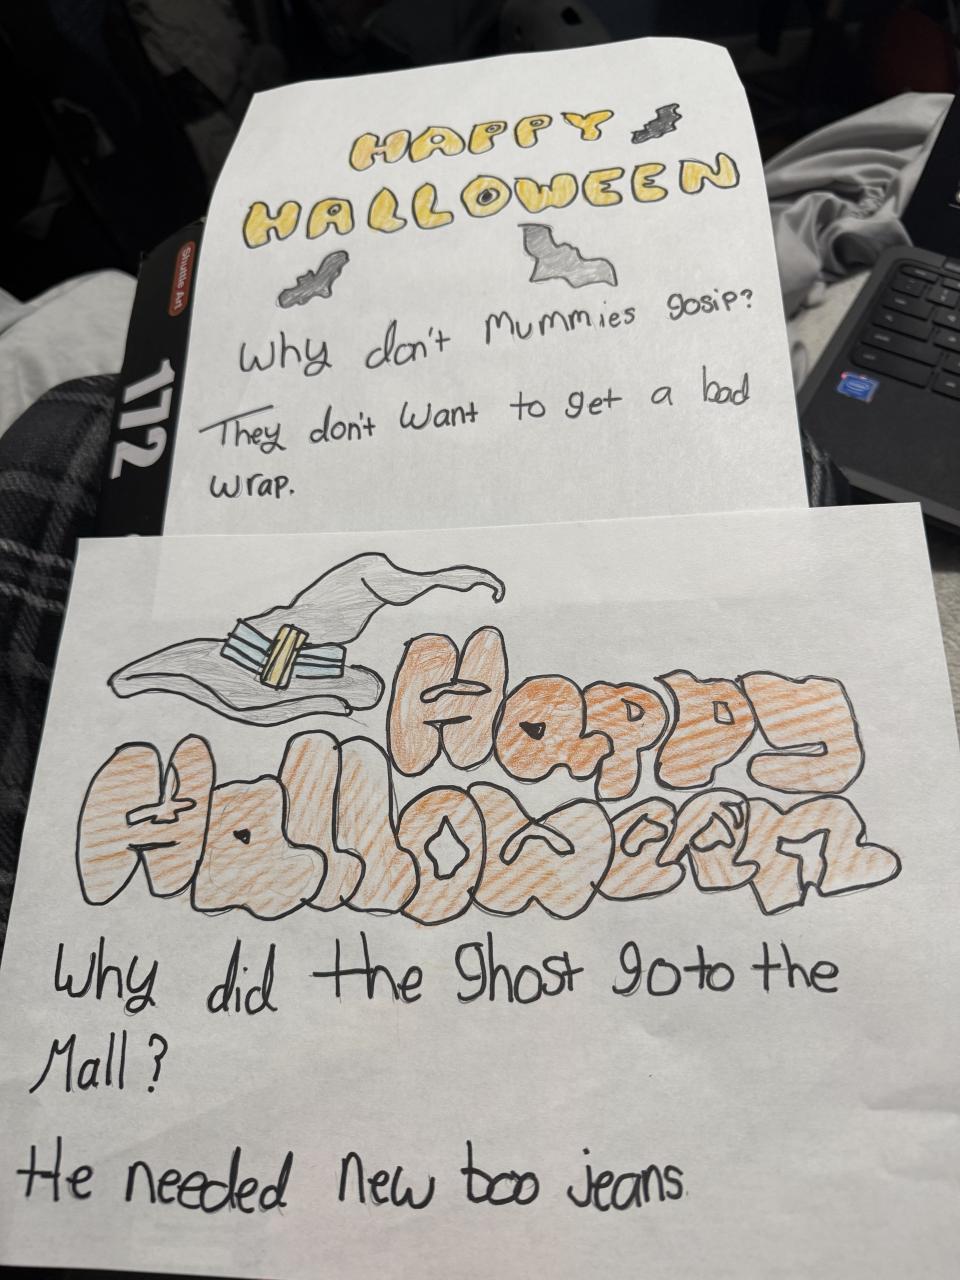 HAPPY
HALLOWEEN
Why don't Mummies gosip?
They don't want to get a bad
wrap.
Shuttle Art
172
Happy
Halloween
Why did the ghost go to the
Mall?
He needed new boo jeans.